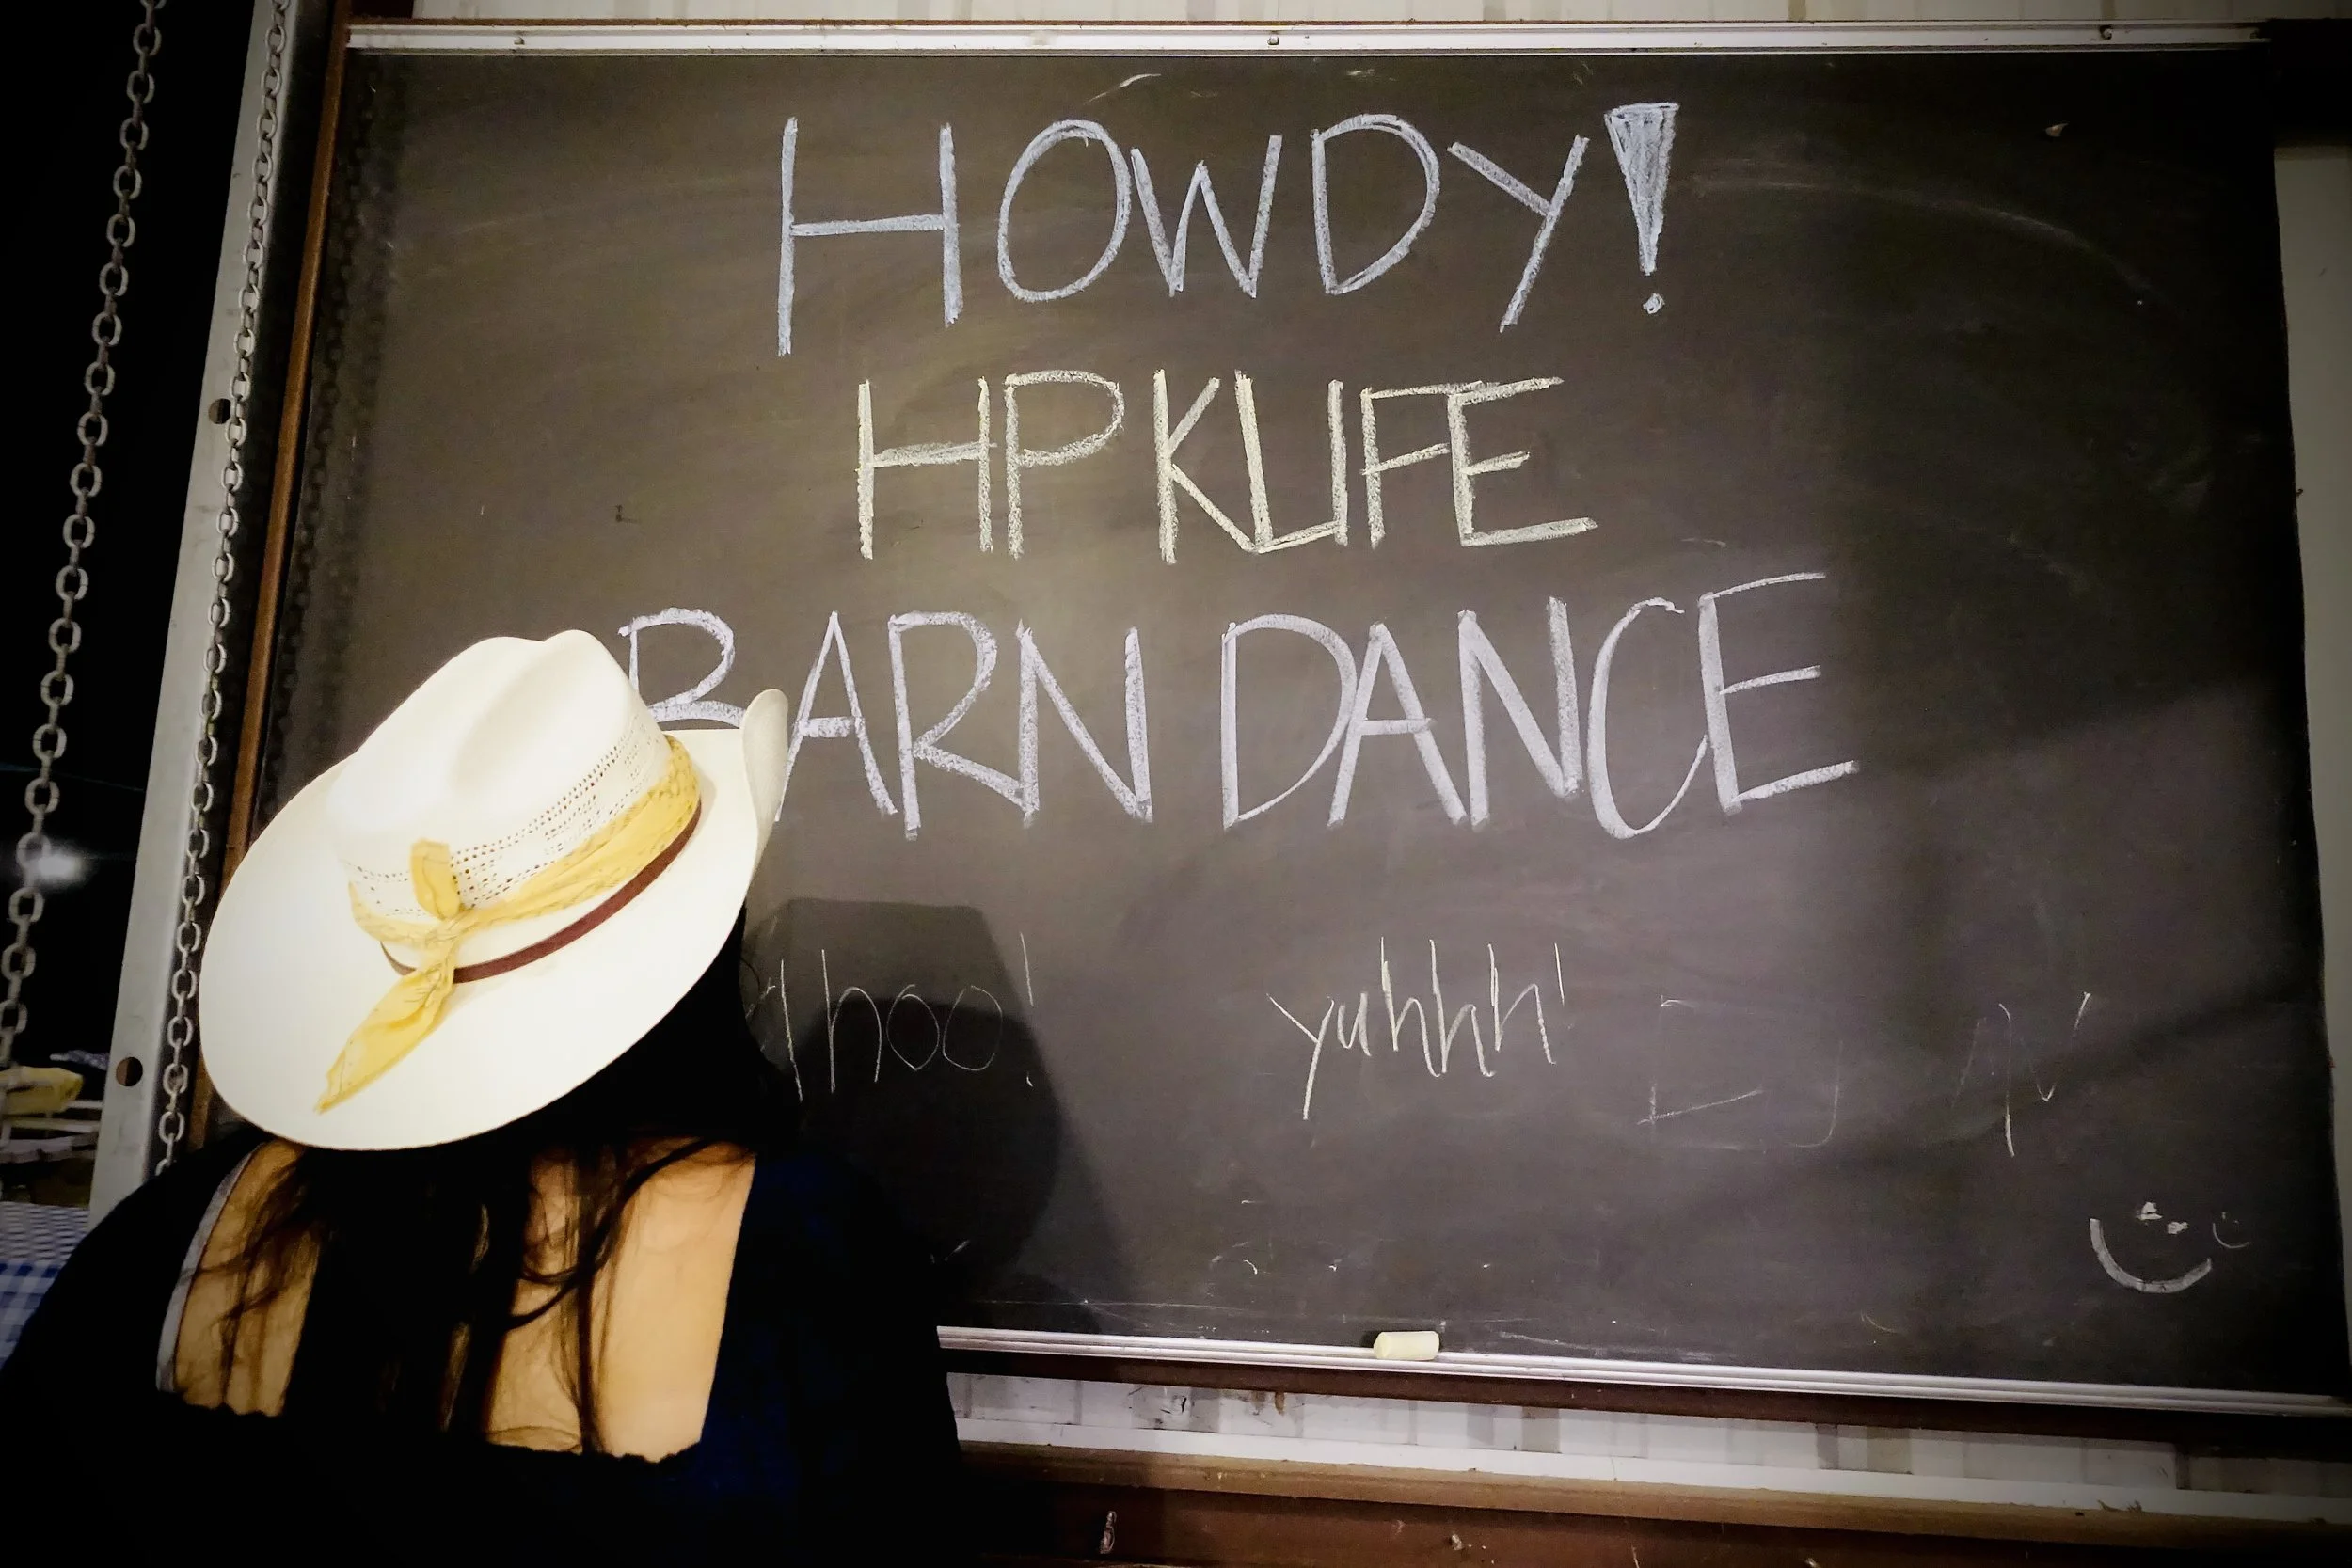 HOWDY!
HP KLIFE
BARN DANCE
hoo! yuhhh!